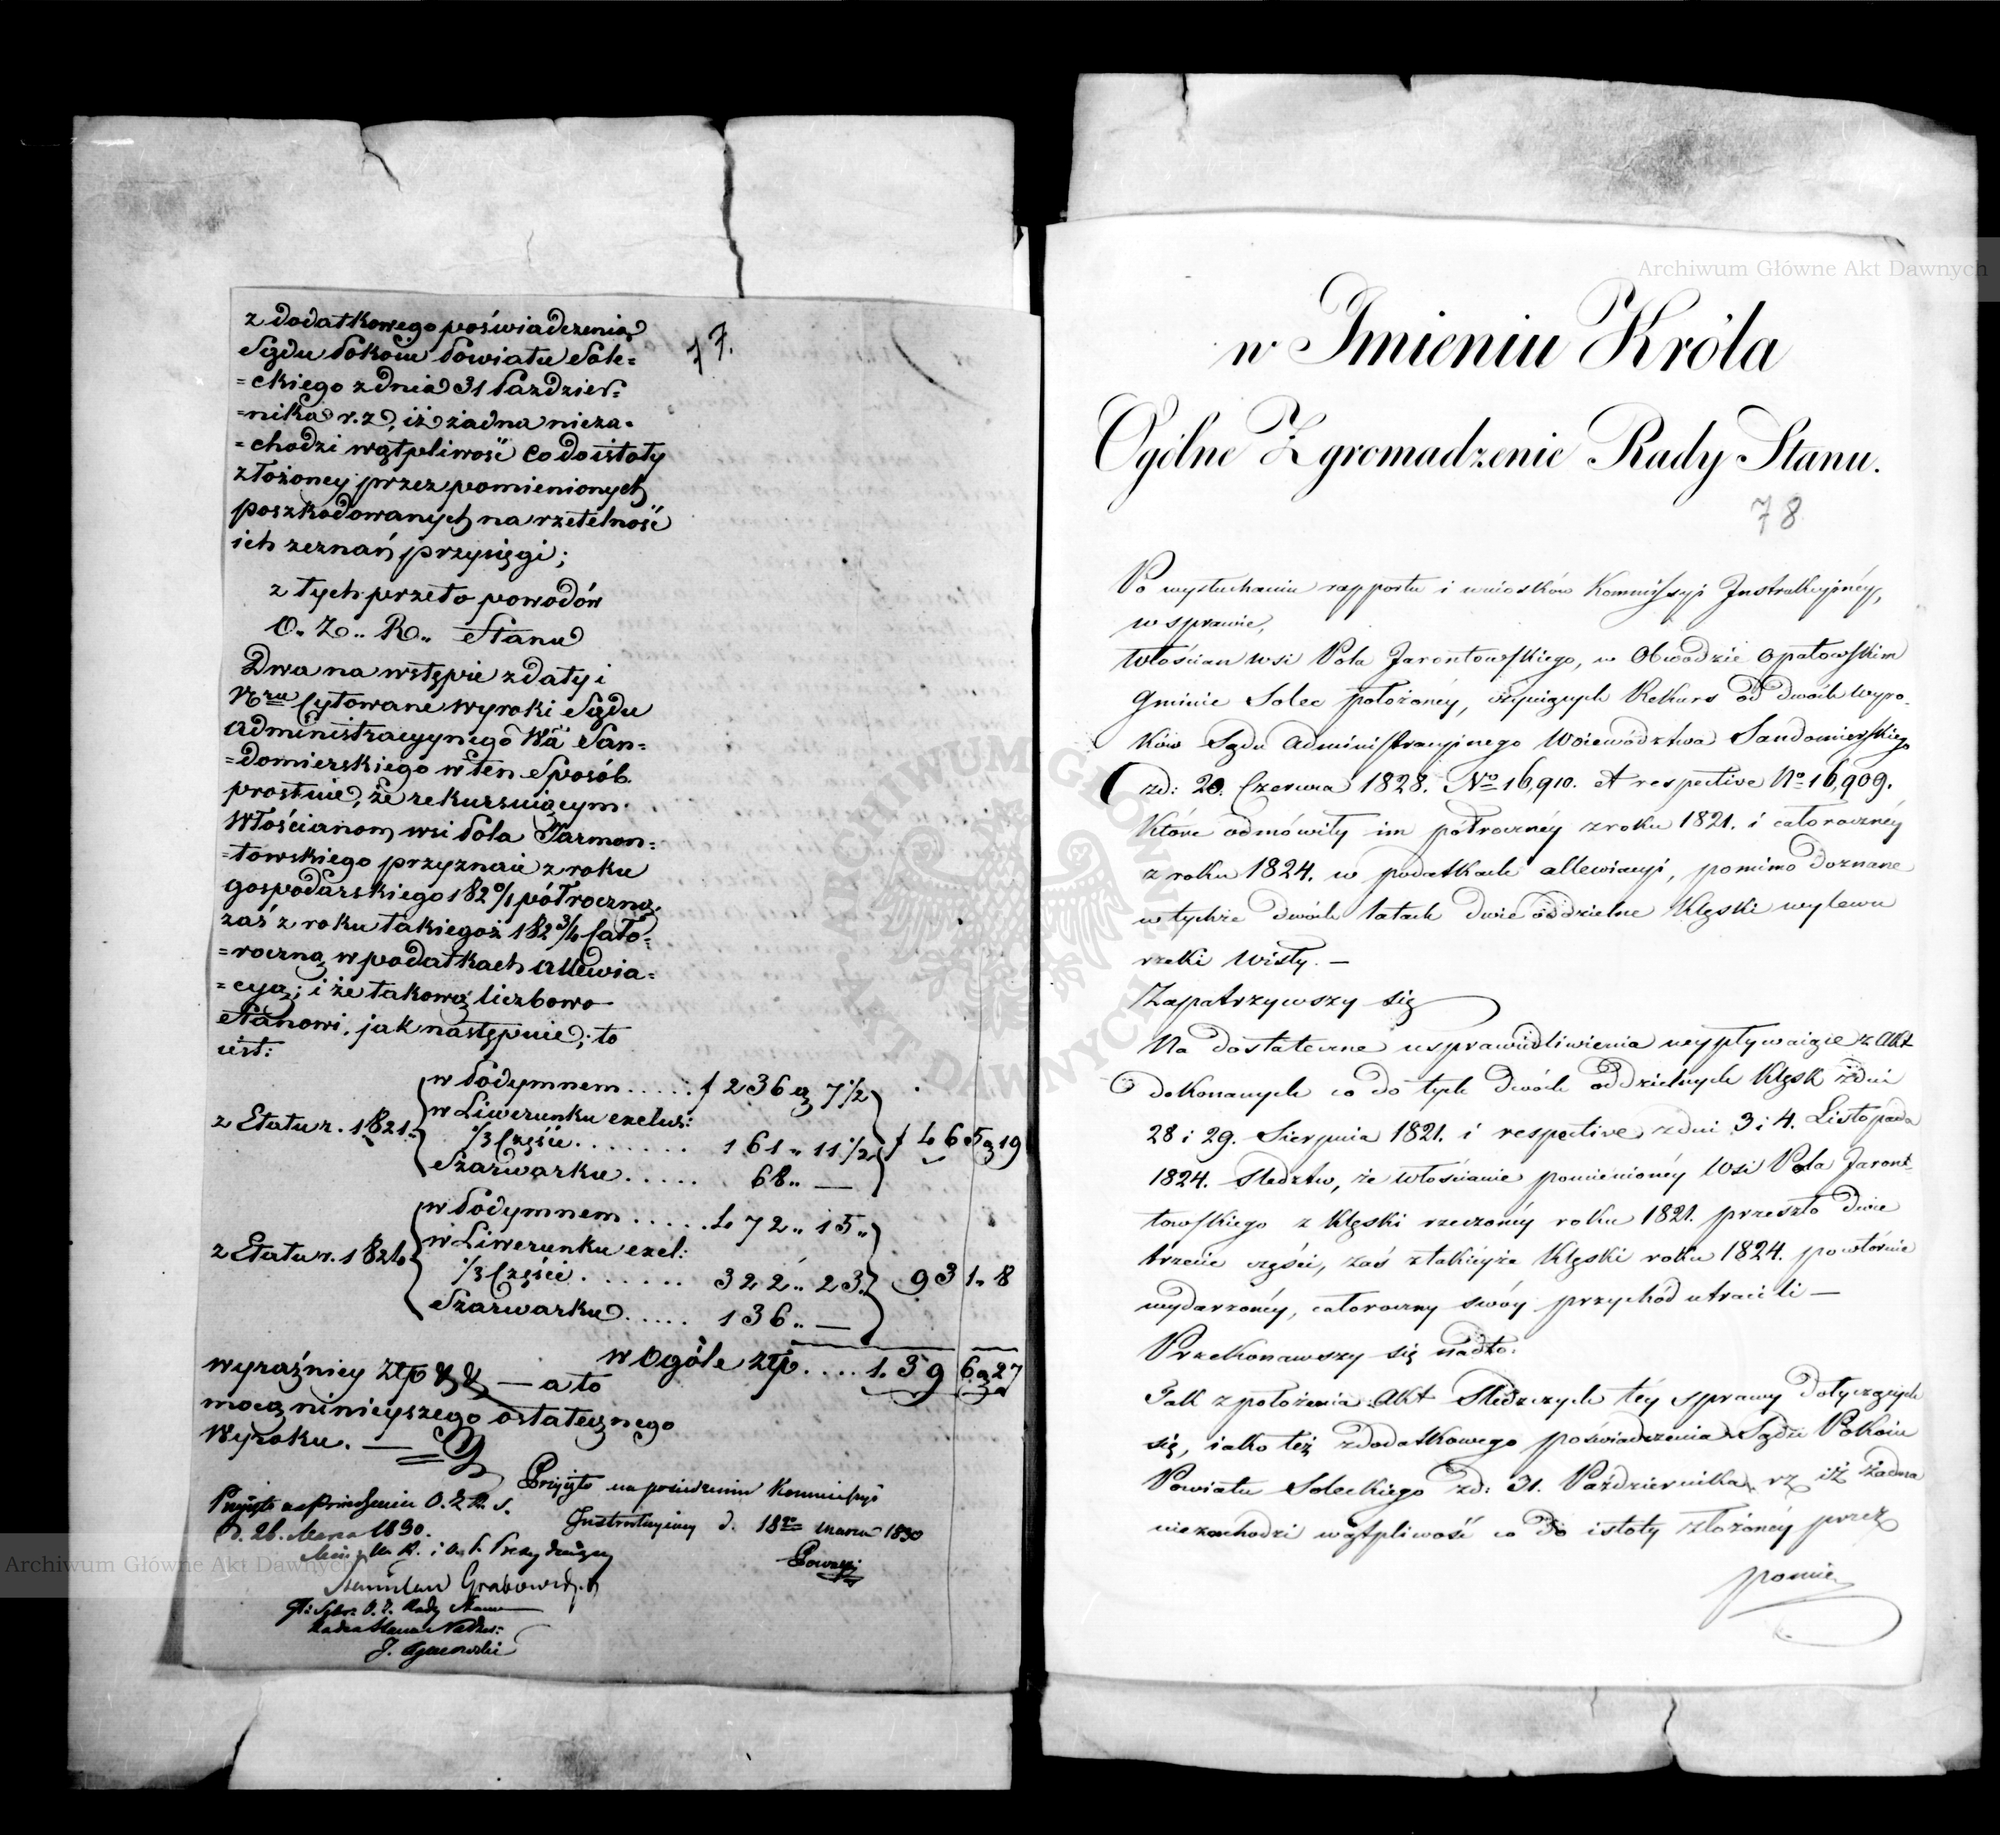 77.
z dodatkowego poświadczenia
Sądu Pokoiu Powiatu Sole=
=ckiego z dnia 31 Paździer=
=nika r. z, iż żadna nieza=
=chodzi wątpliwość co do istoty
złożoney przez pomienionych
poszkodowanych na rzetelność
ich zeznań przysięgi;
z tych przeto powodów
O. Z.. R.. Stanu
Dwa na wstępie z daty i
Nru Cytowane wyroki Sądu
Administracyynego Wa San=
=domierskiego w ten Sposób
prostuie, że rekursuiącym
Włościanom wsi Pola Jarmon=
=towskiego przyznaie z roku
gospodarskiego 182 0/1 półroczną,
zaś z roku takiegoż 182 3/4 Cało=
=roczną w podatkach allewia=
=cyą; i że takową liczbowo
Stanowi, jak następuie; to
iest:
z Etatu r. 1821.
w Podymnem ..... f 236 g 7 1/2
w Liwerunku exclus:
1/3 Części ....... 161 .. 11 1/2
Szarwarku ..... 68 .. —
f 465 g 19
z Etatu r. 1824
w Podymnem ..... 472 .. 15 ..
w Liwerunku excl:
1/3 Części ....... 322 .. 23.
Szarwarku ..... 136 .. —
931 .. 8
w Ogóle złp .... 1.396 g 27
wyraźniey złp — a to
mocą ninieyszego ostatecznego
Wyroku. —
Przyięto na posiedzeniu Kommissyi
Instrukcyiney d. 18go marca 1830
Przyięto na Posiedzeniu O. Z. R. S.
d. 26. Marca 1830.
Stanisław Grabowski
Archiwum Główne Akt Dawnych
w Imieniu Króla
Ogólne Zgromadzenie Rady Stanu.
78
Po wysłuchaniu rapportu i wniosków Kommissyi Instrukcyinéy,
w sprawie,
Włościan wsi Pola Jarontowskiego, w Obwodzie Opatowskim
Gminie Solec położonéy, czyniących Rekurs od dwóch wyro-
ków Sądu Administracyinego Województwa Sandomierskiego
zd: 20. Czerwca 1828. No 16,910. et respective No 16,909.
Które odmówiły im półrocznéy z roku 1821. i całorocznéy
z roku 1824. w podatkach allewiacyi, pomimo doznane
w tychże dwóch latach dwie oddzielne klęski wylewu
rzeki Wisły. —
Zapatrzywszy się
Na dostateczne usprawiedliwienia wypływaiące z Akt
dokonanych co do tych dwóch oddzielnych klęsk z dni
28 i 29. Sierpnia 1821. i respective z dni 3 i 4. Listopada
1824. Śledztw, że włościanie pomienionéy Wsi Pola Jaront-
towskiego z klęski rzeczonéy roku 1821. przeszło dwie
trzecie części, zaś z takiéyże klęski roku 1824. powtórnie
wydarzonéy, całoroczny swóy przychód utracili —
Przekonawszy się nadto:
Tak z położenia Akt Śledczych téy sprawy dotyczących
się, iako też z dodatkowego poświadczenia Sądu Pokoiu
Powiatu Soleckiego zd: 31. Października rz iż żadna
niezachodzi wątpliwość co do istoty złożonéy przez
pomie
Archiwum Główne Akt Dawnych
ARCHIWUM GŁÓWNE AKT DAWNYCH